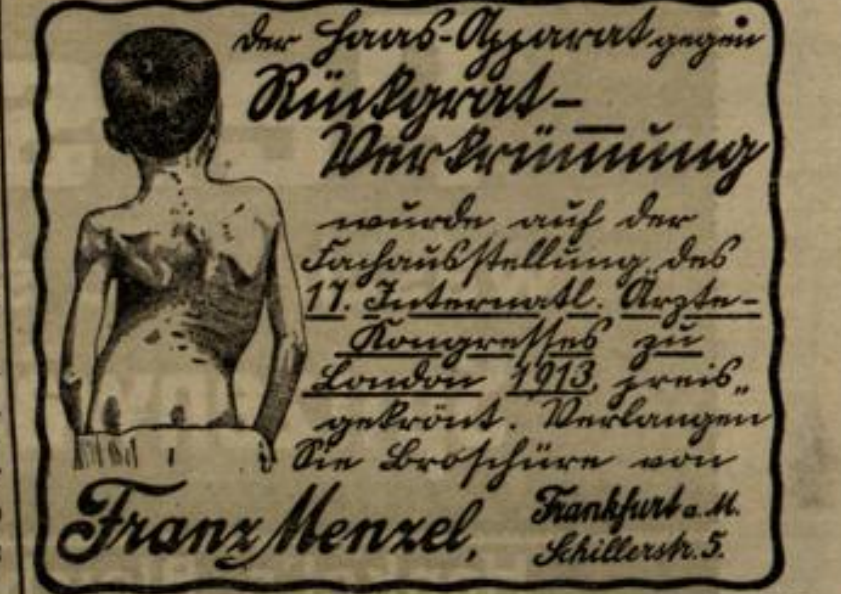 Der Haas-Apparat gegen
Rückgrat-
Verkrümmung
wurde auf der
Fachausstellung des
17. Internatl. Ärzte-
Kongresses zu
London 1913, preis-
gekrönt. Verlangen
Sie Broschüre von
Franz Menzel,
Frankfurt a. M.
Schillerstr. 5.